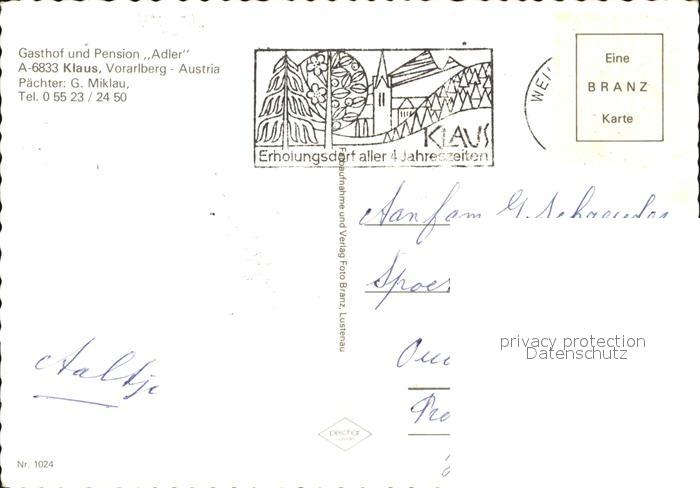 Gasthof und Pension „Adler"
A-6833 Klaus, Vorarlberg - Austria
Pächter: G. Miklau,
Tel. 0 55 23 / 24 50
KLAUS
Erholungsdorf aller 4 Jahreszeiten
WEI
Eine
BRANZ
Karte
Farbaufnahme und Verlag Foto Branz, Lustenau
Aan fam G.
Aaltje
privacy protection
Datenschutz
Nr. 1024